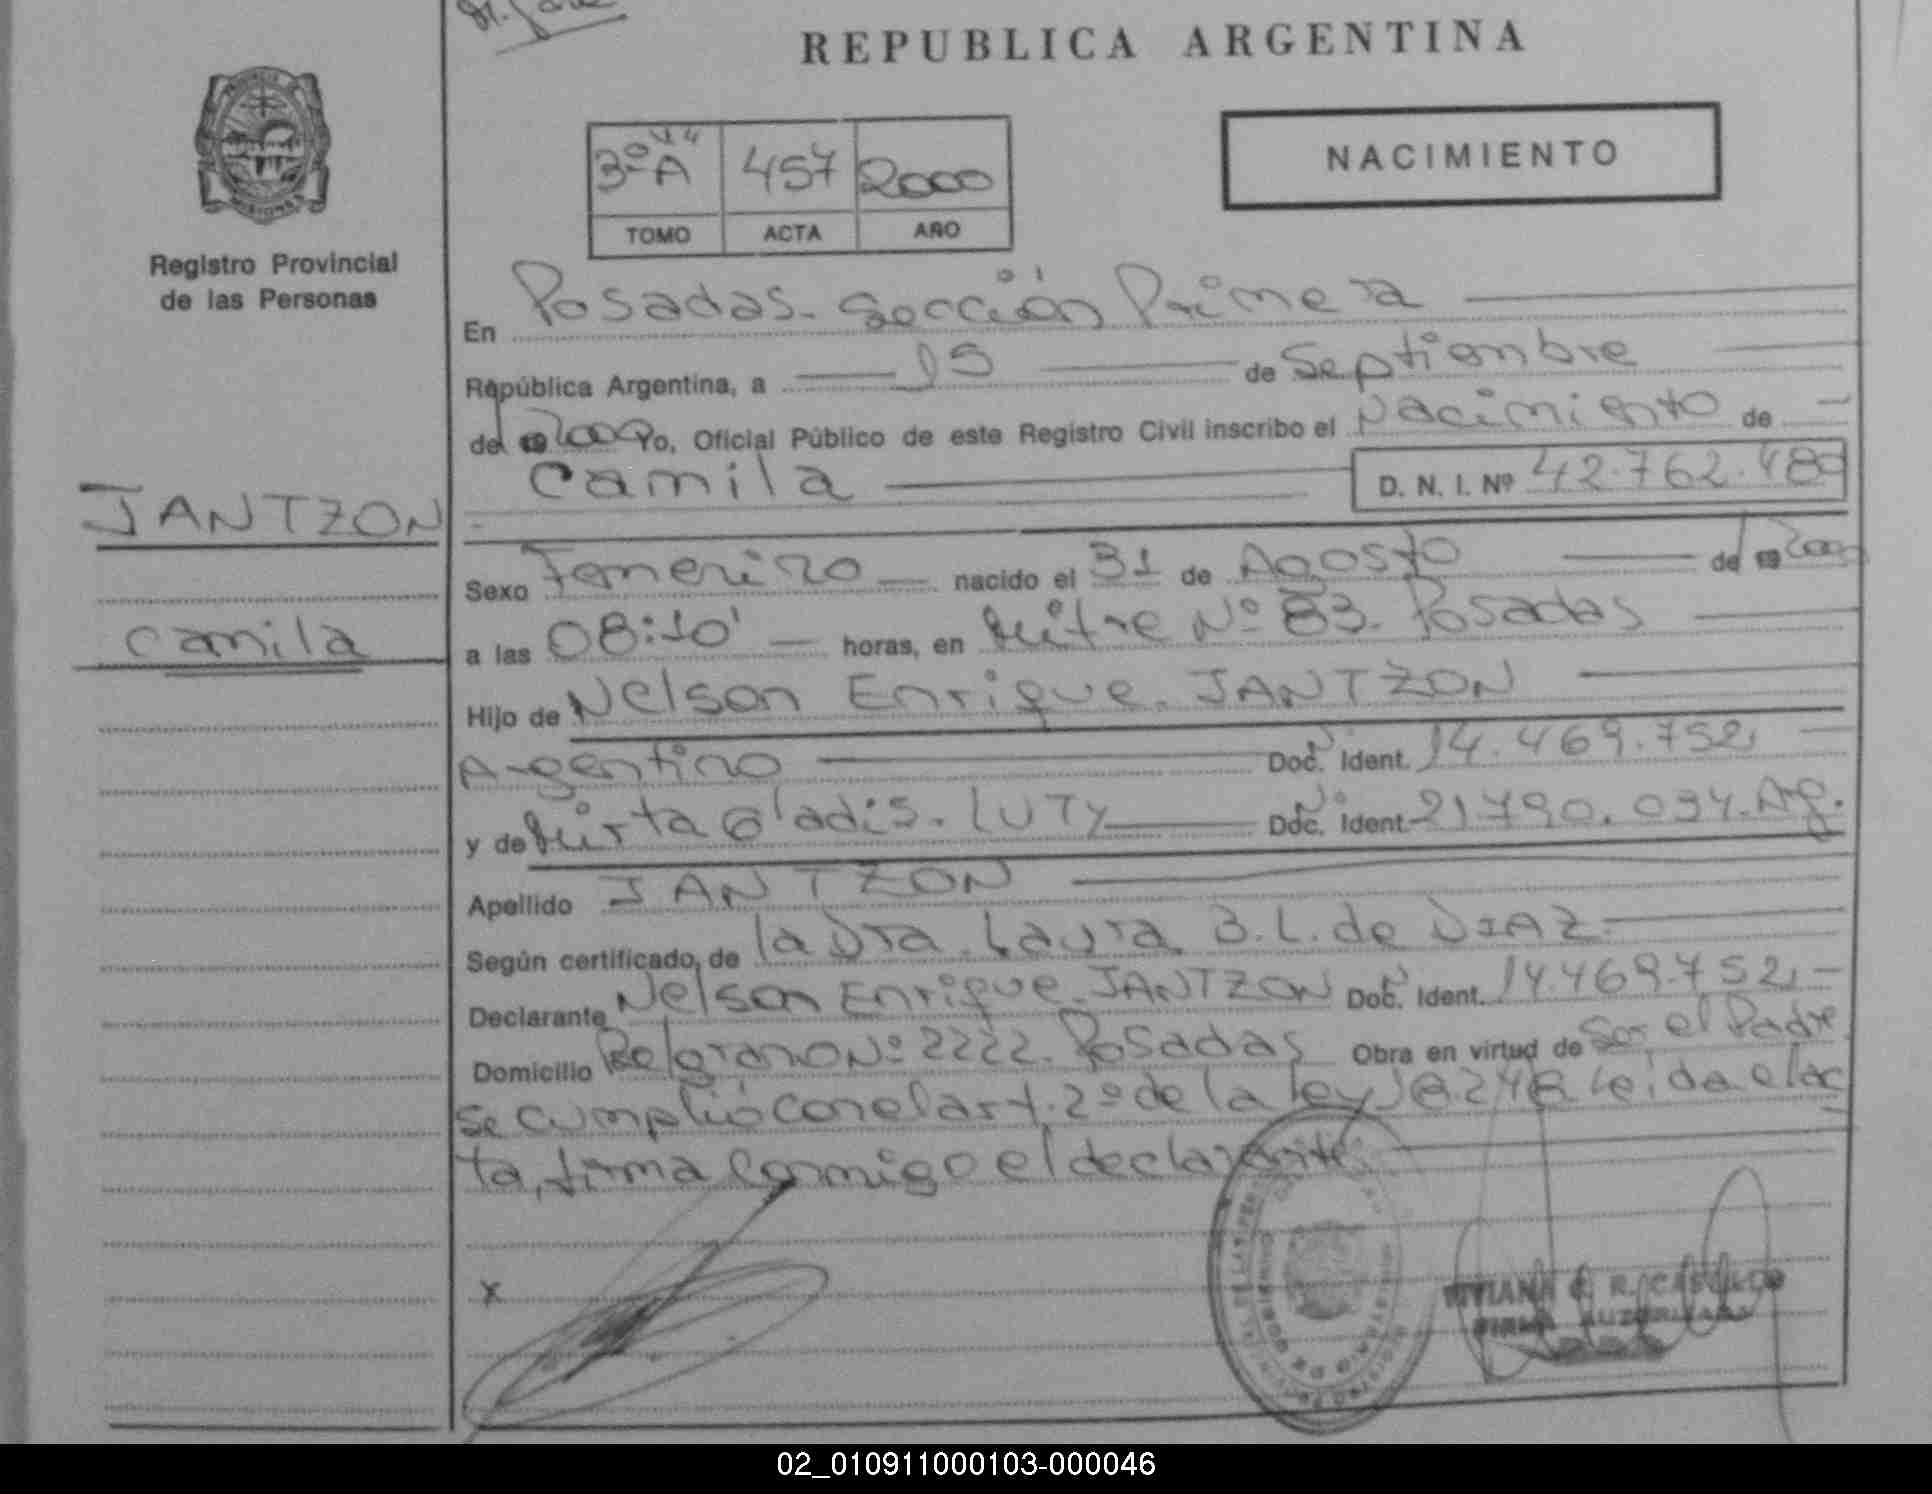 REPUBLICA ARGENTINA
3º A 457 2000
TOMO ACTA AÑO
NACIMIENTO
MISIONES
Registro Provincial
de las Personas
En Posadas. Sección Primera
República Argentina, a 15 de Septiembre
del 2000 Yo, Oficial Público de este Registro Civil inscribo el Nacimiento de
Camila D. N. I. Nº 42.762.480
JANTZON
Sexo Femenino nacido el 31 de Agosto del 2000
Camila
a las 08:10' horas, en Mitre Nº 83. Posadas
Hijo de Nelson Enrique. JANTZON
Argentino Doc. Ident. 14.469.752,
y de Mirta Gladis. LUTY Doc. Ident. 21.790.034. Arg.
Apellido JANTZON
Según certificado de la Dra. Laura B.L. de DIAZ.
Declarante Nelson Enrique. JANTZON Doc. Ident. 14.469.752,
Domicilio Belgrano Nº 2222. Posadas Obra en virtud de Ser el Padre
Se cumplió con el art. 2º de la ley Leída el ac
ta, firma conmigo el declarante.
X
VIVIANA R.
FIRMA AUTORIZADA
02_010911000103-000046